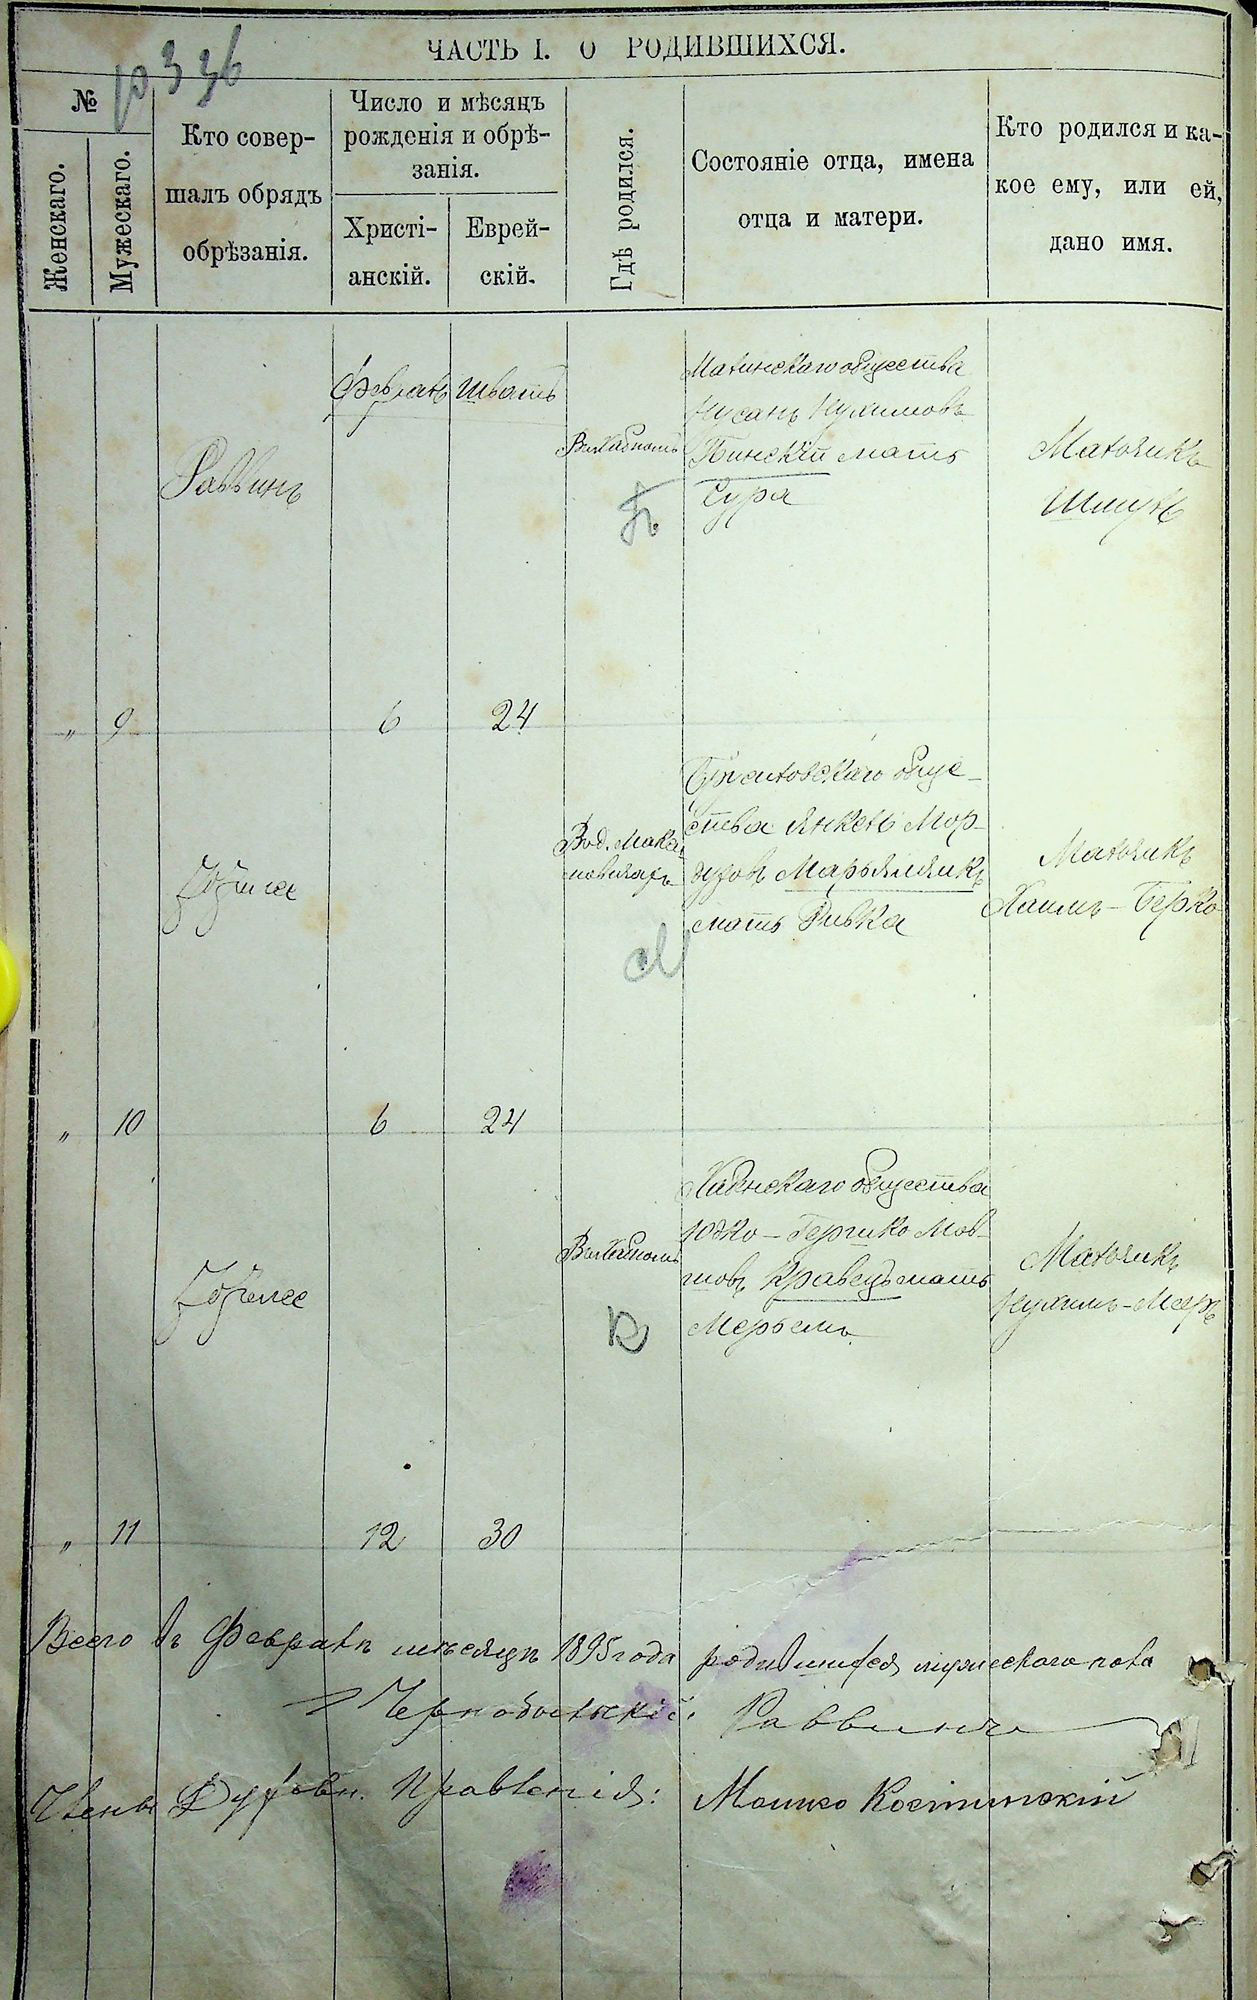 ЧАСТЬ I. О РОДИВШИХСЯ.
10336
№
Женскаго.
Мужескаго.
Кто совер-
шалъ обрядъ
обрѣзанія.
Число и мѣсяцъ
рожденія и обрѣ-
занія.
Христі-
анскій.
Еврей-
скій.
Гдѣ родился.
Состояніе отца, имена
отца и матери.
Кто родился и ка-
кое ему, или ей,
дано имя.
Февраль Шватъ
Раввинъ
общества
Нусанъ Нухимовъ
Пинскій мать
Сура
Мальчикъ
Шмуль
П.
" 9 6 24
общe-
ства Янкель Мор-
духовъ Марьямчикъ
мать Ривка
Мальчикъ
Хаимъ-Берко
М
" 10 6 24
Хабенскаго общества
Юдко-Гершко Мов-
шовъ Кравецъ мать
Мерьемъ
Мальчикъ
Нухимъ-Меръ
К
" 11 12 30
Всего въ Февралѣ мѣсяцѣ 1895 года родившихся мужескаго пола
Чернобыльскій Раввинъ
Члены Духовн. Правленія: Мошко